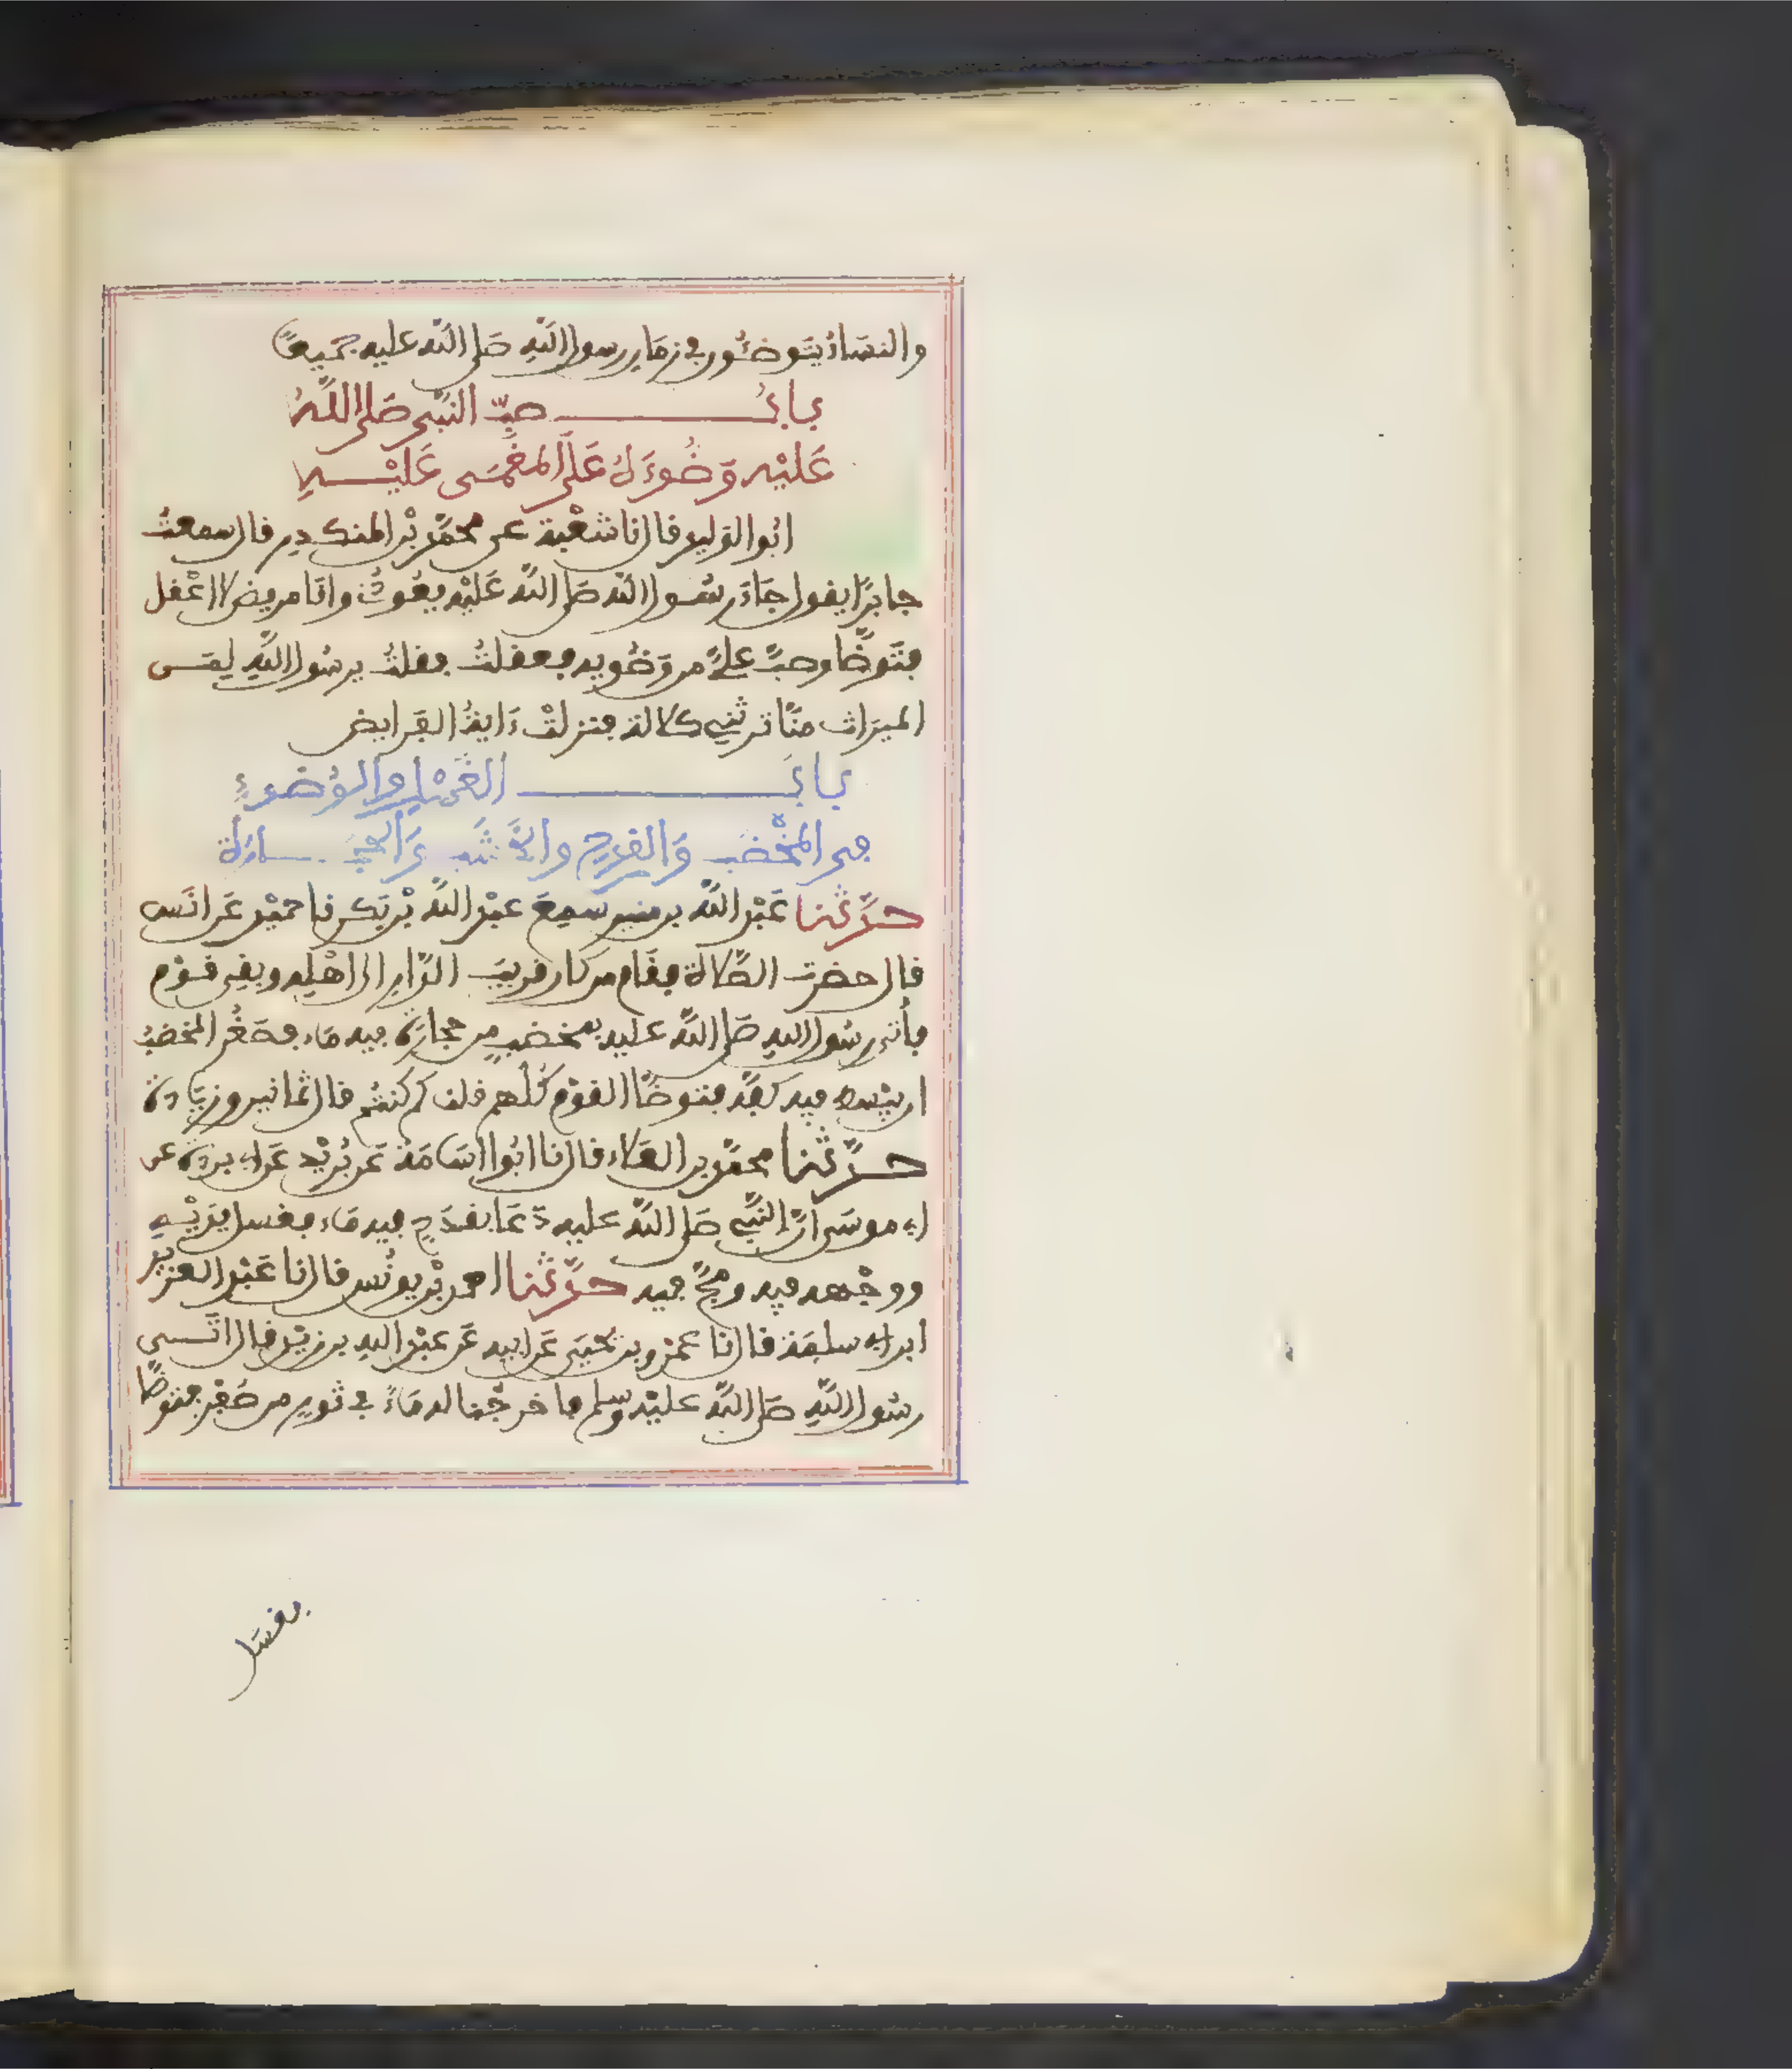 والنساءُ يتوضئون في زمان رسول اللهِ صَلى الله عليه جميعًا
بابُ صبِّ النبي صَلى اللهُ
عَلَيْهِ وَضُوءَهُ عَلَى المغمَى عَلَيْهِ
ابُوا الوَليد قال نا شعْبة عن محمَّد بْن المنكدِر قال سمعتُ
جابرًا يقول جَاءَ رسُول الله صَلى اللهُ عَلَيْه يعُودُني وانَا مريض لا اعْقل
فتَوضَّا وصبَّ عليَّ من وَضُويه فعقلتُ فقلتُ يرسُول اللَّهِ لِمَن
الميرَاث منَّا ترثني كلالة فنزلتْ ءَايةُ الفَرايض
بابُ الغُسْلِ والوُضوءِ
في المِخْضَبِ وَالقدح والخَشَبِ وَالحِجَارة
حدَّثنا عَبْد اللَّه بن منير سمعَ عبْد اللَّه بْن بَكر نا حميْد عَن انَس
قال حضرت الصَّلاة فقَام من كان قريبَ الدَّار الى اهْلِه وبقِى قوْم
فأُتى رسُول اللهِ صَلى اللَّه عليه بمخضبٍ من حجارَة فيه مَاء فصَغُر المخضبُ
ان يبْسط فيه كفَّه فتوضَّا القوْم كُلُّهم قلنا كم كنتُم قال ثمانين وزيَادة
حدَّثنا محمَّد بن العَلاء قال نا ابُوا اسَامَة عَن بُرَيْد عَن ابي بردة عن
ابي موسَى انَّ النبَّي صَلى اللَّه عليه دَعَا بقدَحٍ فيه مَاء فغسل يدَيْهِ
ووجْهه فيه ومجَّ فيه حدَّثنا احمد بْن يونُس قال نا عَبْد العزيز
ابن ابي سلمَة قال نا عمْرو بن يحْيَى عَن ابيه عَن عبْد اللهِ بن زيْد قال اتَى
رسُول اللَّهِ صَلى اللَّه عليْه وسلم فاخرجْنا له مَاءً في ثورٍ من صُفْر فتوضَّا
بغسَل